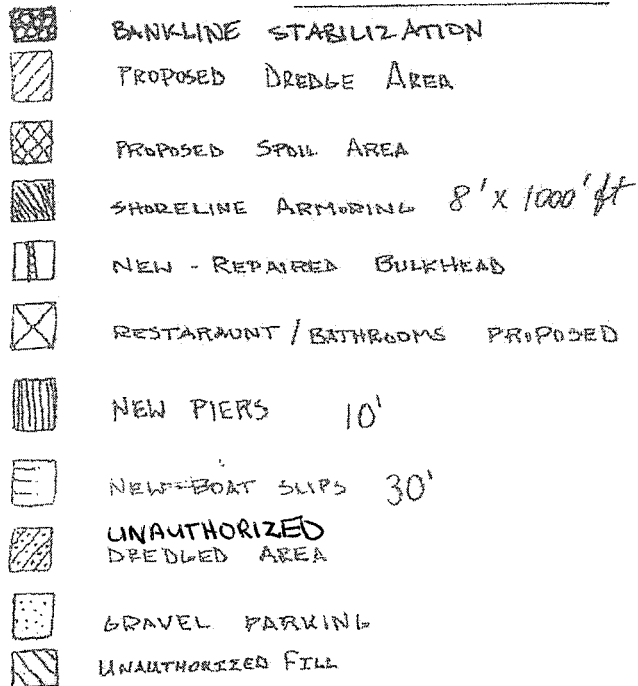 BANKLINE STABILIZATION
PROPOSED DREDGE AREA
PROPOSED SPOIL AREA
SHORELINE ARMORING 8' X 1000' ft
NEW - REPAIRED BULKHEAD
RESTARAUNT / BATHROOMS PROPOSED
NEW PIERS 10'
NEW BOAT SLIPS 30'
UNAUTHORIZED
DREDGED AREA
GRAVEL PARKING
UNAUTHORIZED FILL